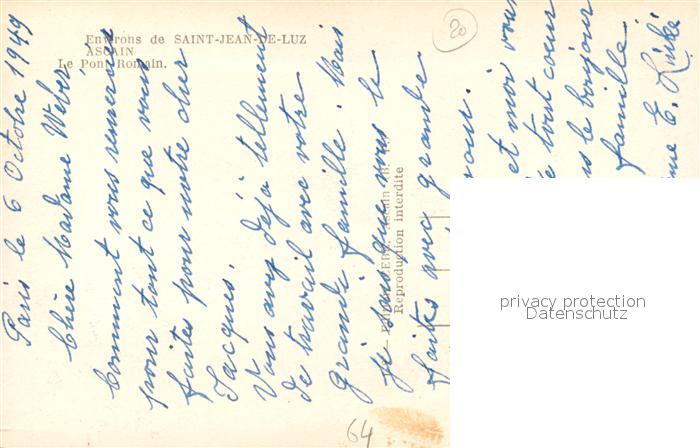 Environs de SAINT-JEAN-DE-LUZ
ASCAIN
Le Pont Romain.
20
Paris le 6 Octobre 1949
Chère Madame Weber
Comment vous remercier
pour tout ce que vous
faites pour notre cher
Jacques.
Vous avez déjà tellement
de travail avec votre
grande famille. Mais
je sais que vous le
faites avec grande
et moi vous
de tout cœur
le bonjour
famille
E.
Ascain
Reproduction interdite
privacy protection
Datenschutz
64